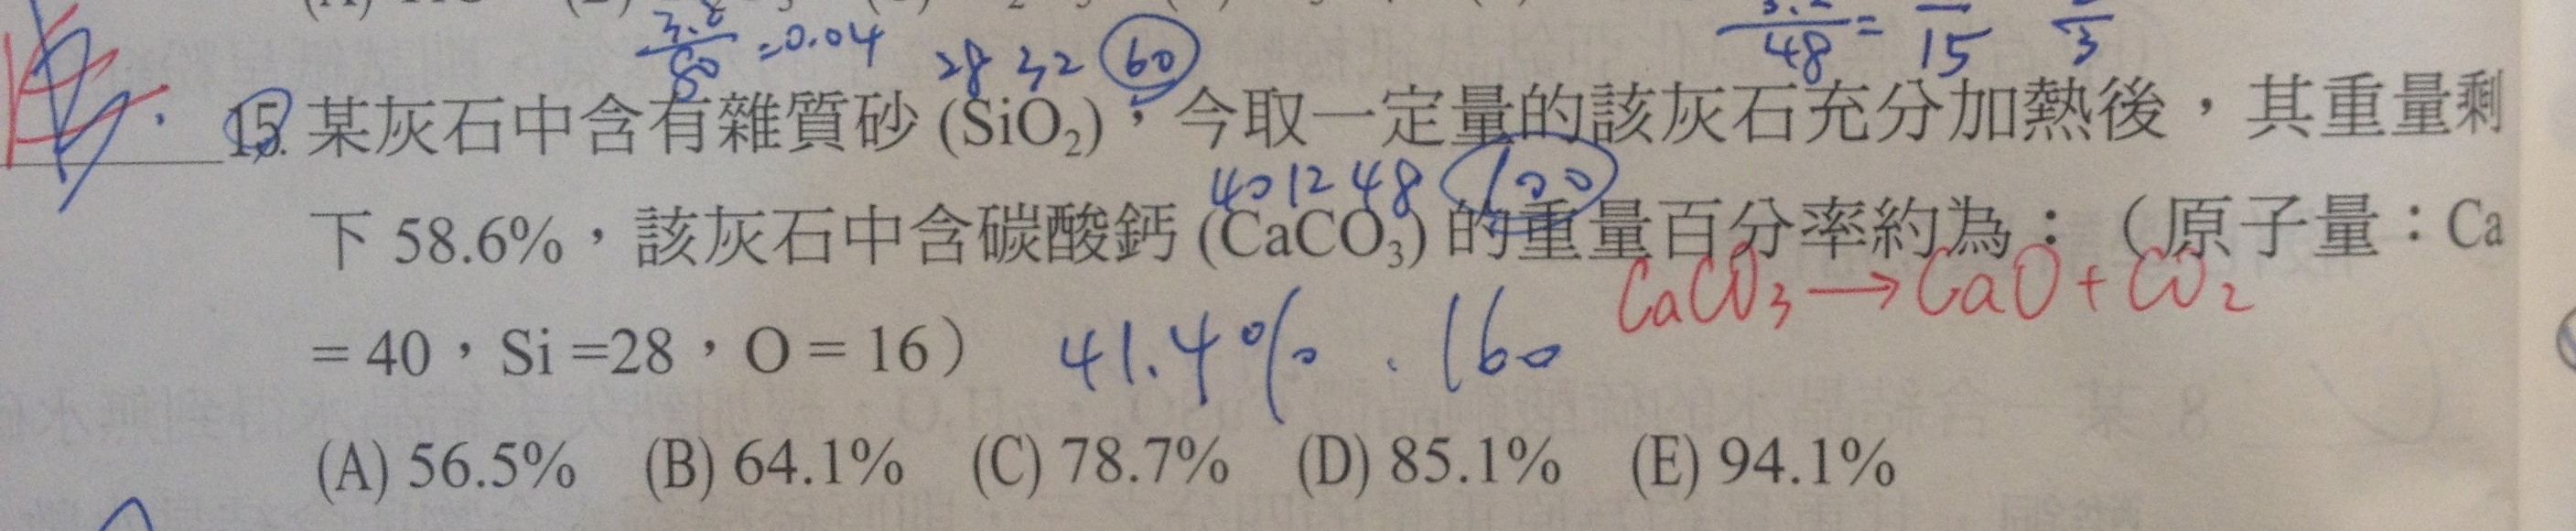 =0.04 28 32 60
48 = 15 3
15. 某灰石中含有雜質砂 (SiO₂),今取一定量的該灰石充分加熱後,其重量剩
40 12 48 100
下 58.6%,該灰石中含碳酸鈣 (CaCO₃) 的重量百分率約為:(原子量:Ca
CaCO₃ → CaO + CO₂
= 40,Si =28,O = 16)
41.4% . 160
(A) 56.5% (B) 64.1% (C) 78.7% (D) 85.1% (E) 94.1%